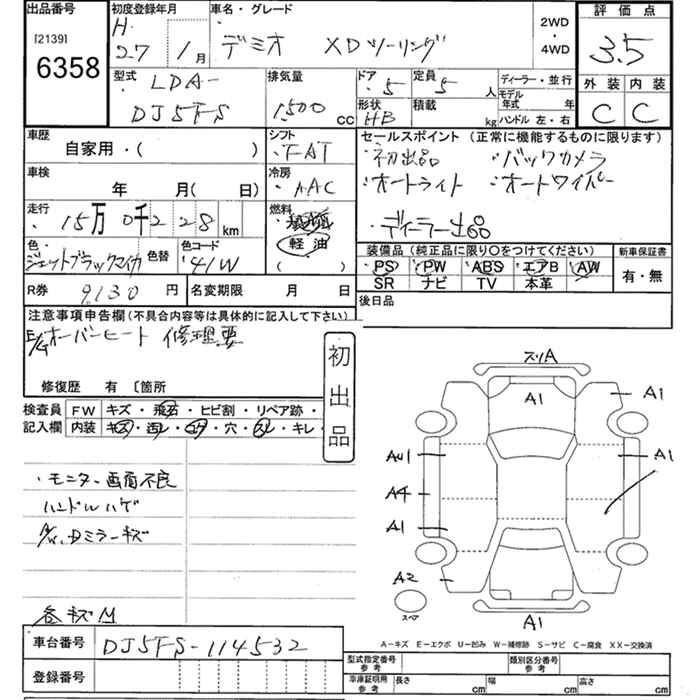 出品番号 初度登録年月 車名・グレード 評価点
[2139] H 2WD
6358 27 / 1月 デミオ XDツーリング ・4WD 3.5
型式 LDA- 排気量 ドア 定員 ディーラー・並行 外装 内装
・5 5 人 モデル年式 年
DJ5FS 1500 CC 形状 積載 C C
HB kg ハンドル 左・右
車歴 シフト セールスポイント (正常に機能するものに限ります)
自家用・( ) ・FAT ・初出品 ・バックカメラ
車検 冷房 ・オートライト ・オートワイパー
年 月( 日) ・AAC
走行 燃料 ・ディーラー出品
・15万0千228km 軽油
色 色替 色コード ( ) 装備品(純正品に限り○をつけてください) 新車保証書
ジェットブラックマイカ 41W PS PW ABS エアB AW 有・無
SR ナビ TV 本革
R券 9130 円 名変期限 月 日 後日品
注意事項申告欄(不具合内容等は具体的に記入して下さい)
E/Gオーバーヒート 修理要
修復歴 有 〔箇所
初出品
検査員 FW キズ・飛石・ヒビ割・リペア跡・
記入欄 内装 キズ・汚レ・コゲ・穴・スレ・キレ・
・モニター画面不良
ハンドルハゲ
Dミラーキズ
各キズM
スリA
A1
A1
AU1
A1
A4
A1
A2
スペア
A1
A-キズ E-エクボ U-凹み W-補修跡 S-サビ C-腐食 XX-交換済
車台番号 DJ5FS-114532
登録番号
型式指定番号参考 類別区分番号参考
車庫証明用参考 長さ cm 幅 cm 高さ cm